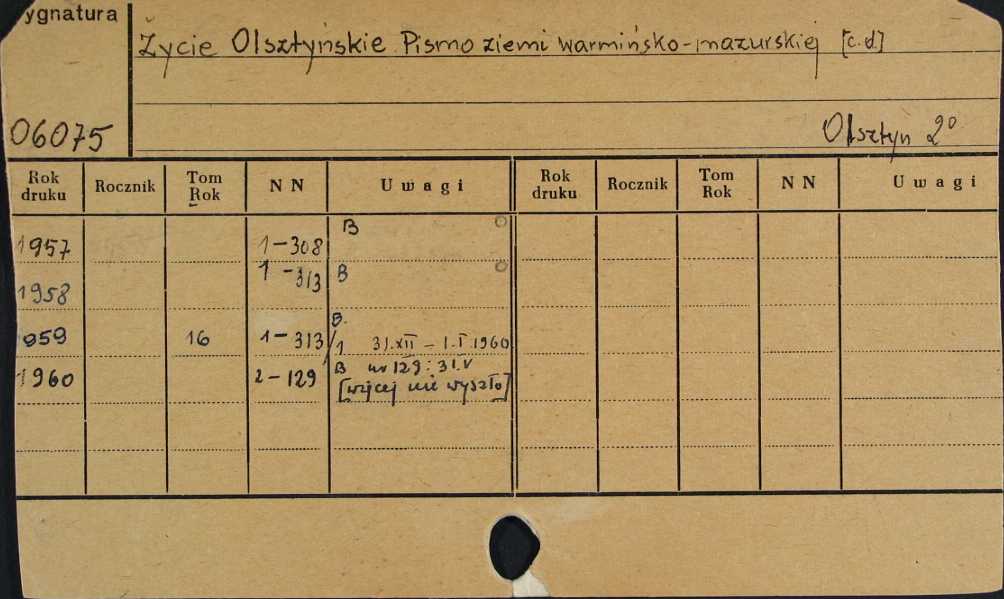 ygnatura
Życie Olsztyńskie Pismo ziemi warmińsko-mazurskiej [c.d.]
06075
Olsztyn 2°
Rok druku Rocznik Tom Rok N N Uwagi Rok druku Rocznik Tom Rok N N Uwagi
1957 1-308 B
1958 1-313 B
1959 16 1-313/1 B. 31.XII - 1.I.1960
1960 2-129 B nr 129: 31.V
[więcej nie wyszło]